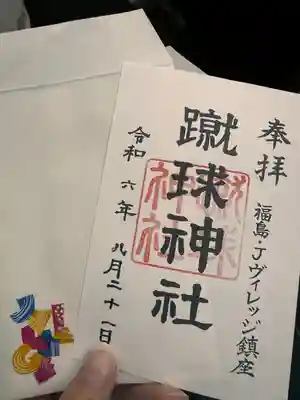 奉拝
福島・Jヴィレッジ鎮座
蹴球神社
蹴球神社
令和六年九月二十一日